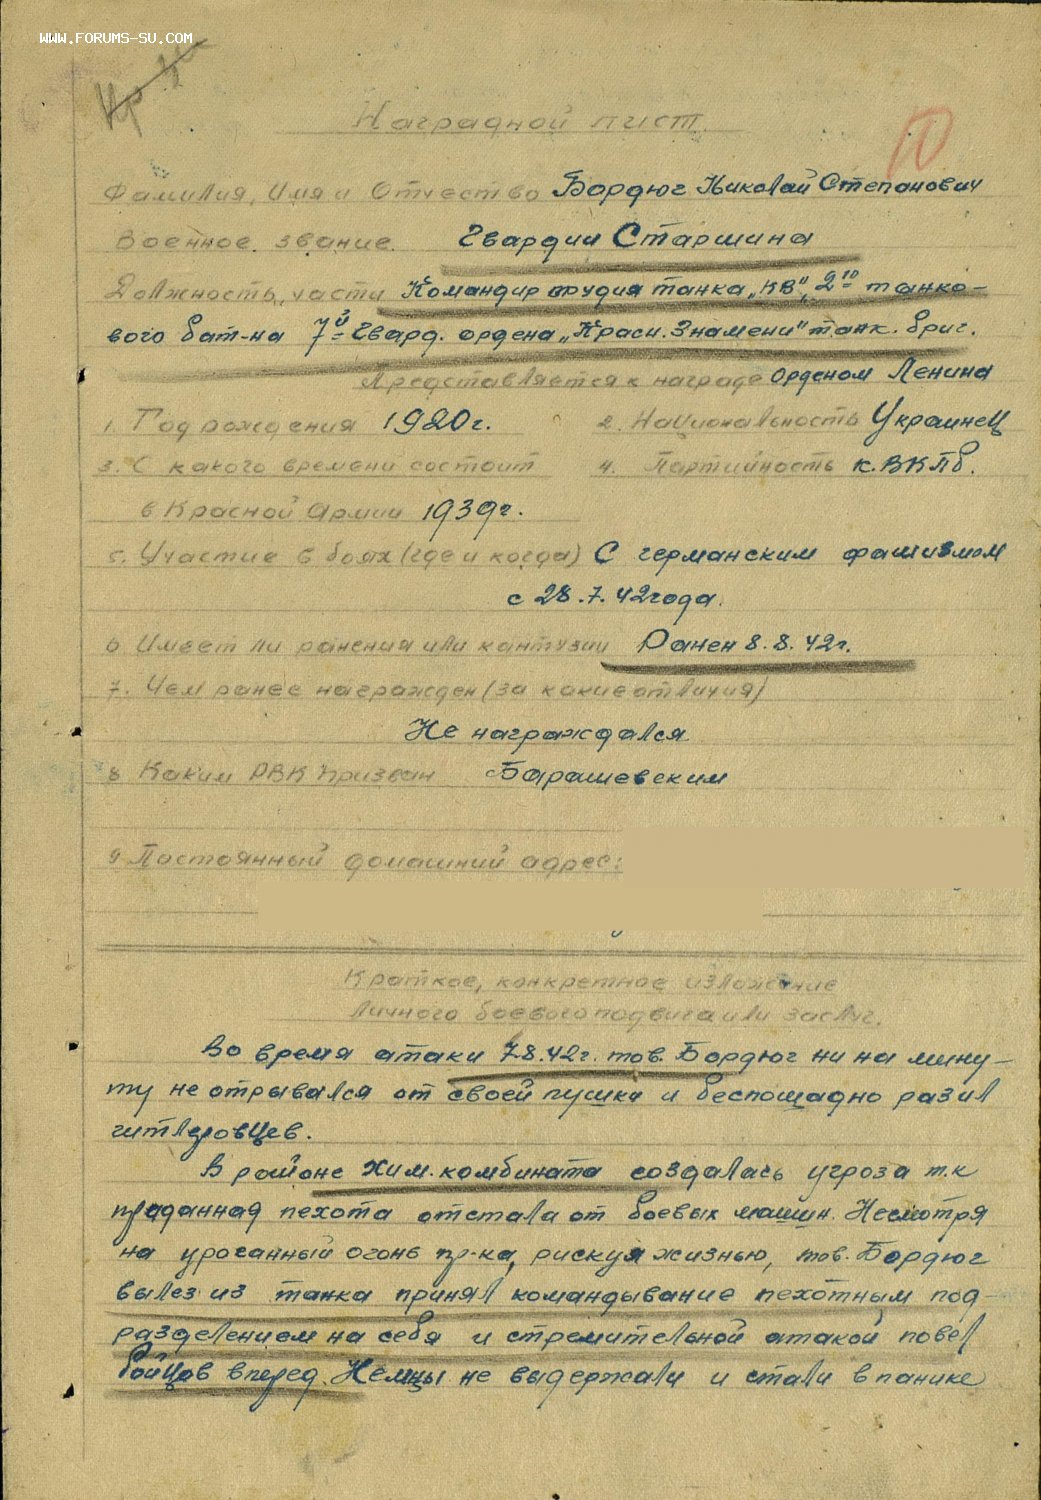 WWW.FORUMS-SU.COM
Наградной лист.
Фамилия, Имя и Отчество Бордюг Николай Степанович
Военное звание. Гвардии Старшина
Должность, части Командир орудия танка „КВ", 2го танко-
вого бат-на 7й Гвард. ордена „Красн. Знамени" танк. бриг.
Представляется к награде Орденом Ленина
1. Год рождения 1920г. 2. Национальность Украинец
3. С какого времени состоит 4. Партийность к. ВКПб.
в Красной Армии 1939г.
5. Участие в боях (где и когда) С германским фашизмом
с 28.7.42года.
6 Имеет ли ранения или контузии Ранен 8.8.42г.
7. Чем ранее награжден (за какие отличия)
Не награждался
8 Каким РВК призван Барашевским
9 Постоянный домашний адрес:
Краткое, конкретное изложение
личного боевого подвига или заслуг.
Во время атаки 7.8.42г. тов. Бордюг ни на мину-
ту не отрывался от своей пушки и беспощадно разил
гитлеровцев.
В районе хим. комбината создалась угроза т.к
приданная пехота отстала от боевых машин. Несмотря
на ураганный огонь пр-ка, рискуя жизнью, тов. Бордюг
вылез из танка принял командывание пехотным под-
разделением на себя и стремительной атакой повел
бойцов вперед. Немцы не выдержали и стали в панике